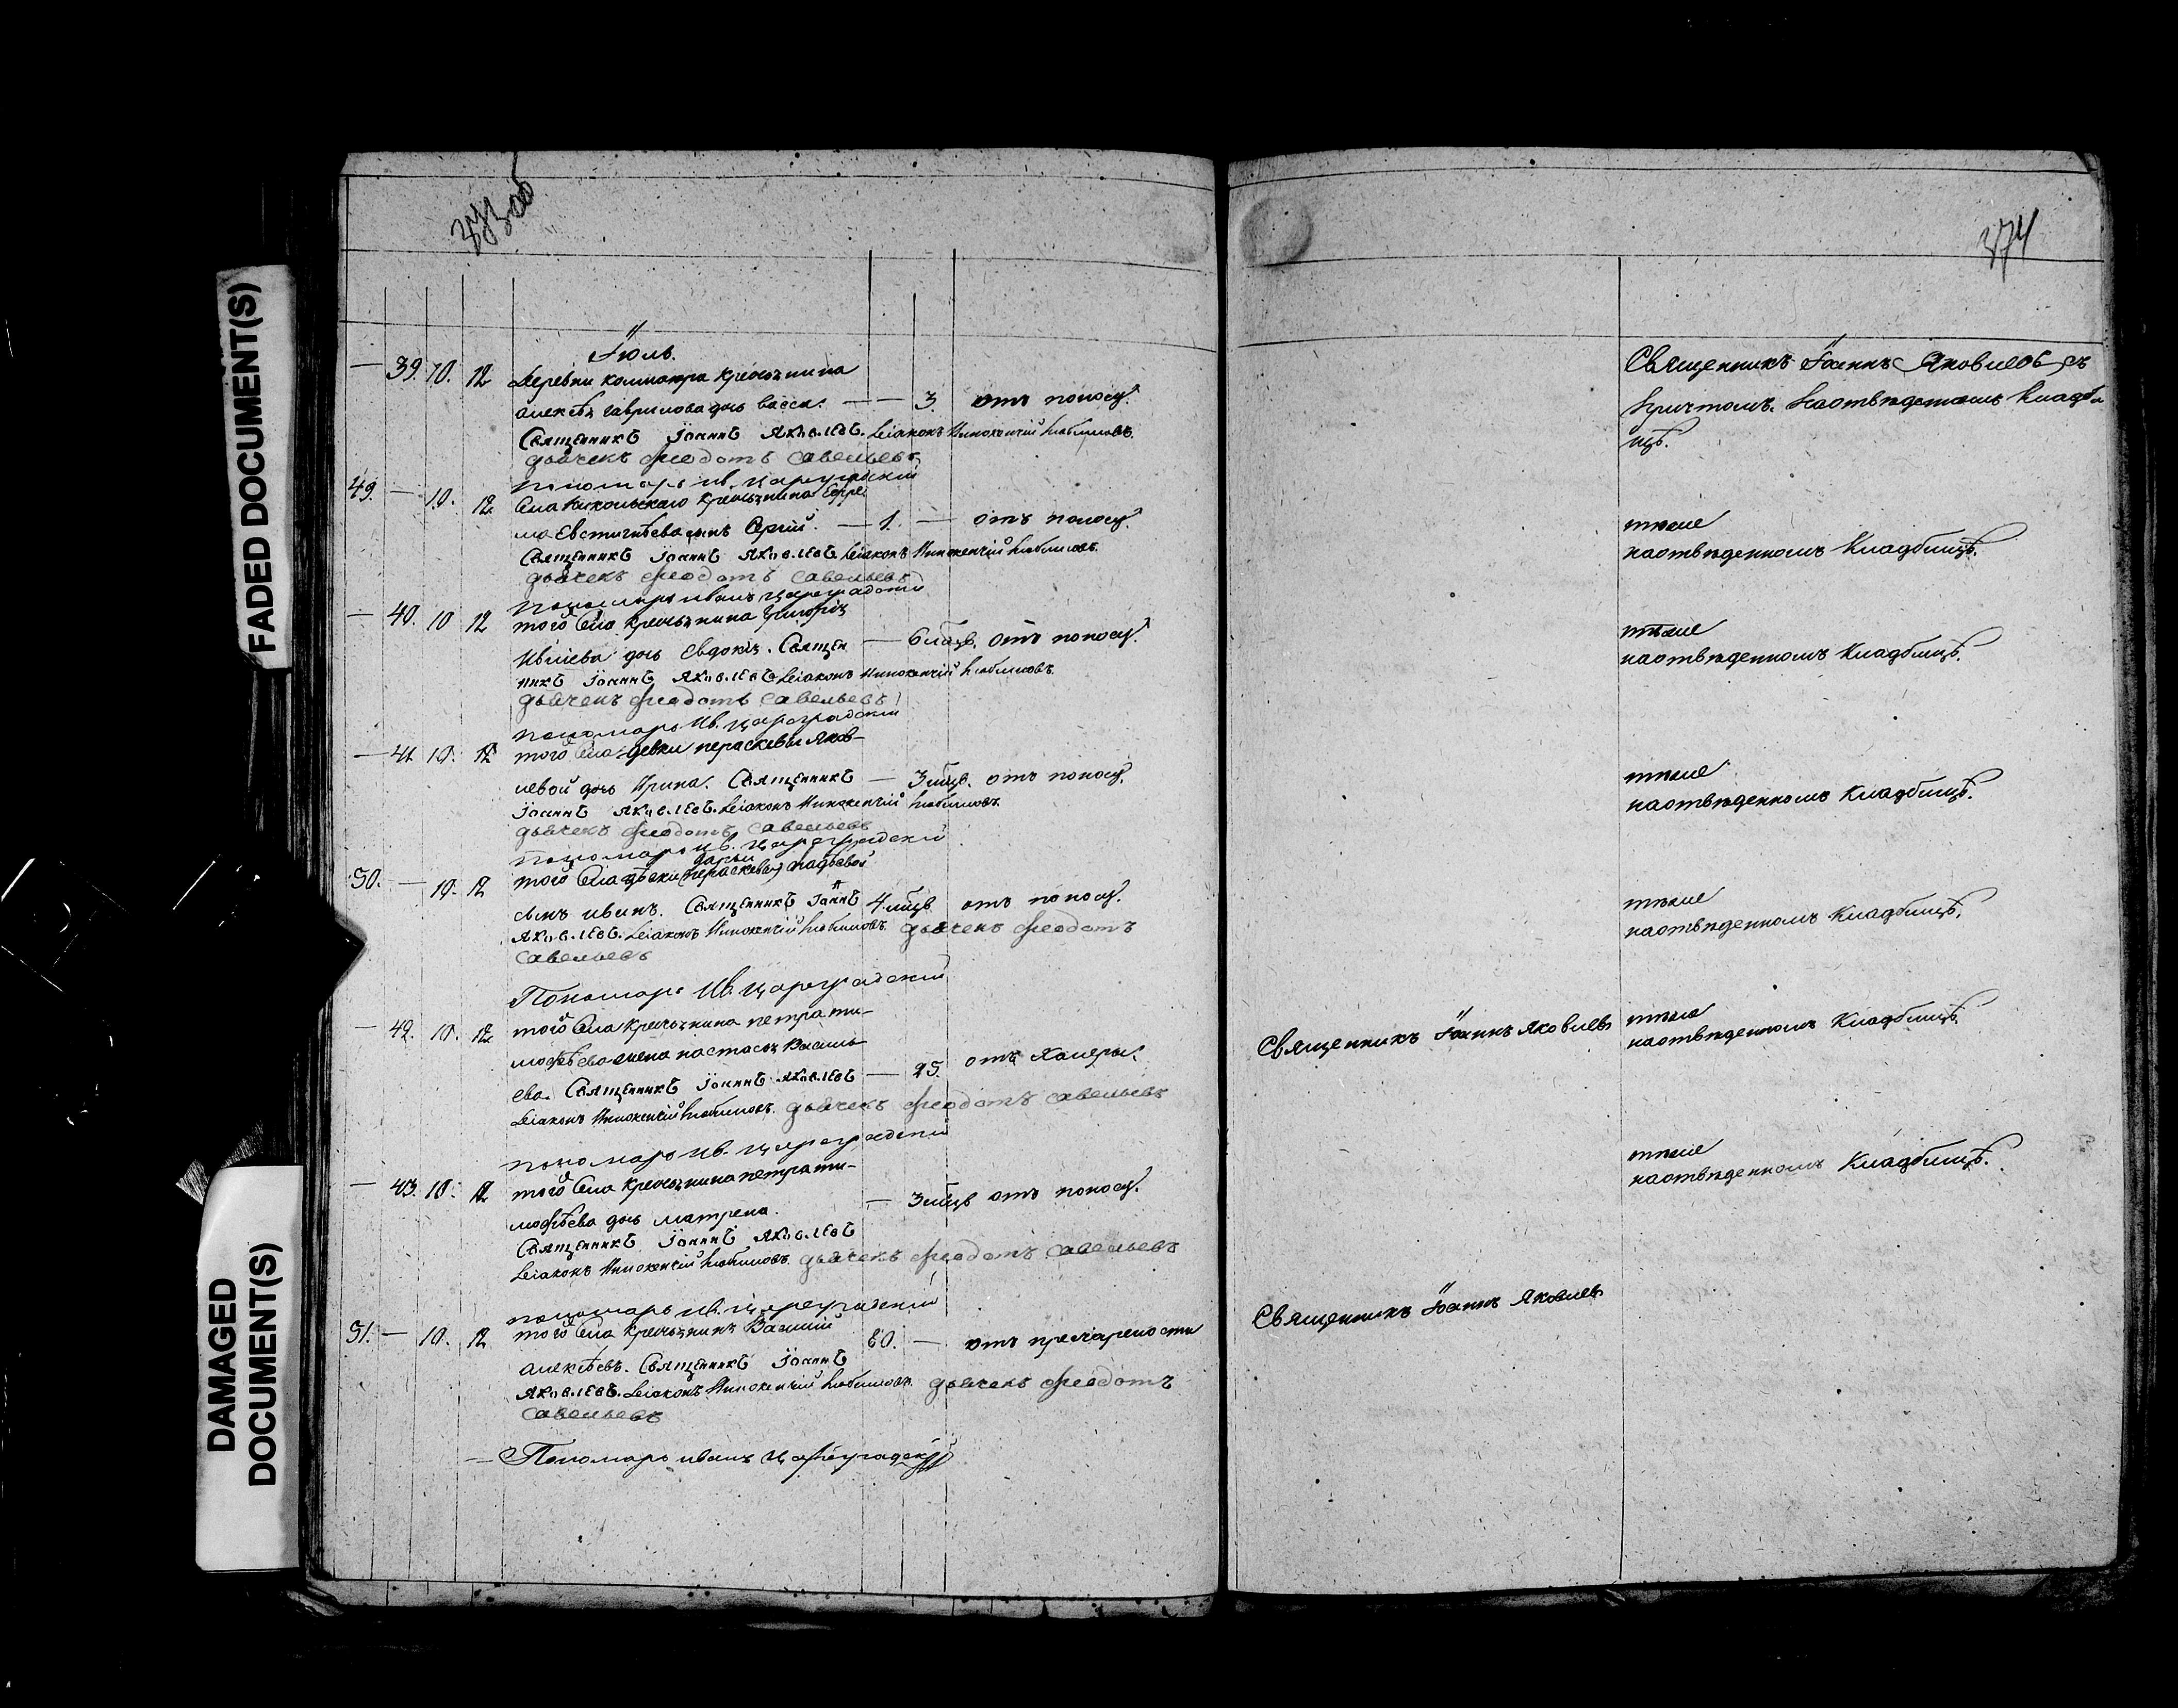 FADED DOCUMENT(S)
DAMAGED
DOCUMENT(S)
373об
374
Іюль.
— 39. 10. 12 Деревни крестьянина
Алексѣя Гаврилова дочь Васса. — — 3. отъ поносу.
Священникъ Іоаннъ Яковлевъ. Діаконъ Иннокентій Любимовъ.
дьячекъ Феодотъ Савельевъ
пономарь Ив. Цареградскій
49. — 10. 12 Села Никольскаго крестьянина Ефре
ма Евстигнѣева сынъ Сергій. — 1. — отъ поносу.
Священникъ Іоаннъ Яковлевъ Діаконъ Иннокентій Любимовъ.
дьячекъ Феодотъ Савельевъ
пономарь Иванъ Цареградскій
— 40. 10 12 того Села крестьянина Григорія
дочь Евдокія. Священ — 6 мцв. отъ поносу.
никъ Іоаннъ Яковлевъ Діаконъ Иннокентій Любимовъ.
дьячекъ Феодотъ Савельевъ
пономарь Ив. Цареградскій
— 41 10. 12 того Села девки Параскевы Яков-
левой дочь Ирина. Священникъ — 3 мцв. отъ поносу.
Іоаннъ Яковлевъ. Діаконъ Иннокентій Любимовъ.
дьячекъ Феодотъ Савельевъ
пономарь Ив. Цареградскій
Дарьи
50. — 10. 12 того Села дѣвки (Параскевы)
сынъ Иванъ. Священникъ Іоаннъ 4 мцв отъ поносу.
Яковлевъ. Діаконъ Иннокентій Любимовъ. дьячекъ Феодотъ
Савельевъ
Пономарь Ив. Цареградскій
— 42. 10. 12 того Села крестьянина Петра Ти-
мофѣева жена Настасья Василь
ева. Священникъ Іоаннъ Яковлевъ — 25. отъ Холеры.
Діаконъ Иннокентій Любимовъ. дьячекъ Феодотъ Савельевъ
пономарь Ив. Цареградскій
— 43. 10. 12 того Села крестьянина Петра Ти-
мофѣева дочь Матрена. — 3 мцв отъ поносу.
Священникъ Іоаннъ Яковлевъ
Діаконъ Иннокентій Любимовъ. дьячекъ Феодотъ Савельевъ
пономарь Ив. Цареградскій
51. — 10. 12 того Села крестьянинъ Василій 80. — отъ престарелости
Алексѣевъ. Священникъ Іоаннъ
Яковлевъ. Діаконъ Иннокентій Любимовъ. дьячекъ Феодотъ
Савельевъ
— Пономарь Иванъ Цареградскій
Священникъ Іоаннъ Яковлев съ
причтомъ. На отведенномъ Кладби
щѣ.
тѣже
на отведенномъ Кладбищѣ.
тѣже
на отведенномъ Кладбищѣ.
тѣже
на отведенномъ Кладбищѣ.
тѣже
на отведенномъ Кладбищѣ.
Священникъ Іоаннъ Яковлевъ тѣже
на отведенномъ Кладбищѣ.
тѣже
на отведенномъ Кладбищѣ.
Священникъ Іоаннъ Яковлевъ